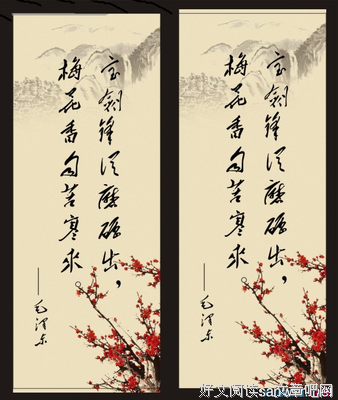 宝剑锋从磨砺出，
梅花香自苦寒来。
——毛泽东
宝剑锋从磨砺出，
梅花香自苦寒来。
——毛泽东
好文阅读 文章吧网